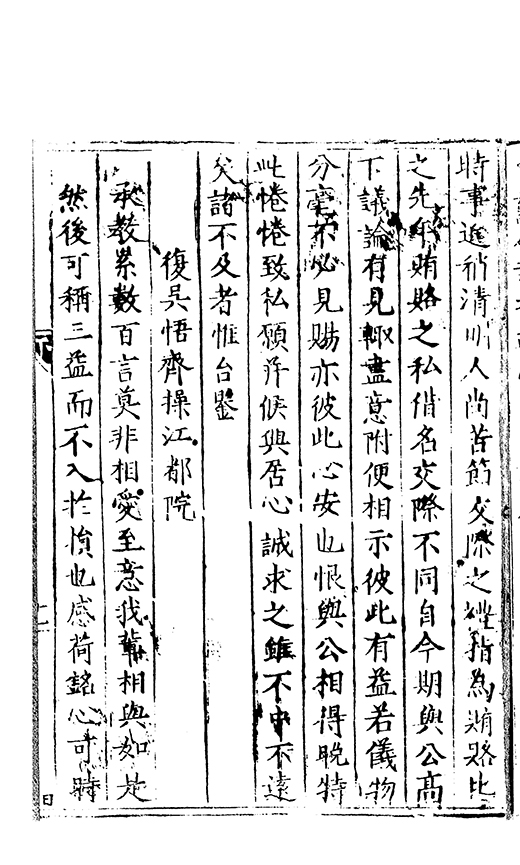 時事邇稍清明人尚苦節交際之禮指為賄賂比
之先年賄賂之私借名交際不同自今期與公高
下議論有見輒盡意附便相示彼此有益若儀物
分毫不必見賜亦彼此心安也恨與公相得晚特
此惓惓致私願并候興居心誠求之雖不中不遠
矣諸不及者惟台鑒
復吳悟齋操江都院
承教累數百言莫非相愛至意我輩相與如是
然後可稱三益而不入於損也感荷銘心可時